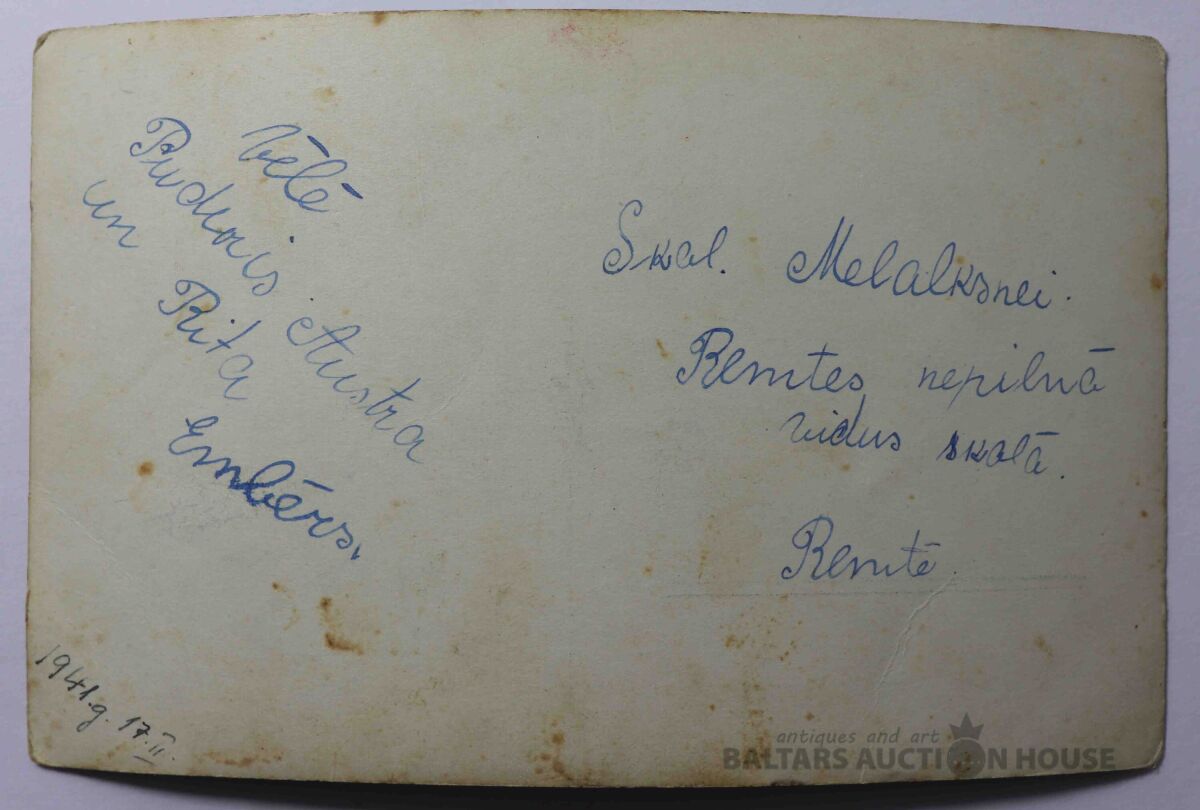 vēlē
Pudnis Austra
un Rita
Embērs.
1941.g. 17.II.
Skol. Melalksnei.
Remtes nepilnā
vidus skolā.
Remtē.
antiques and art
BALTARS AUCTION HOUSE